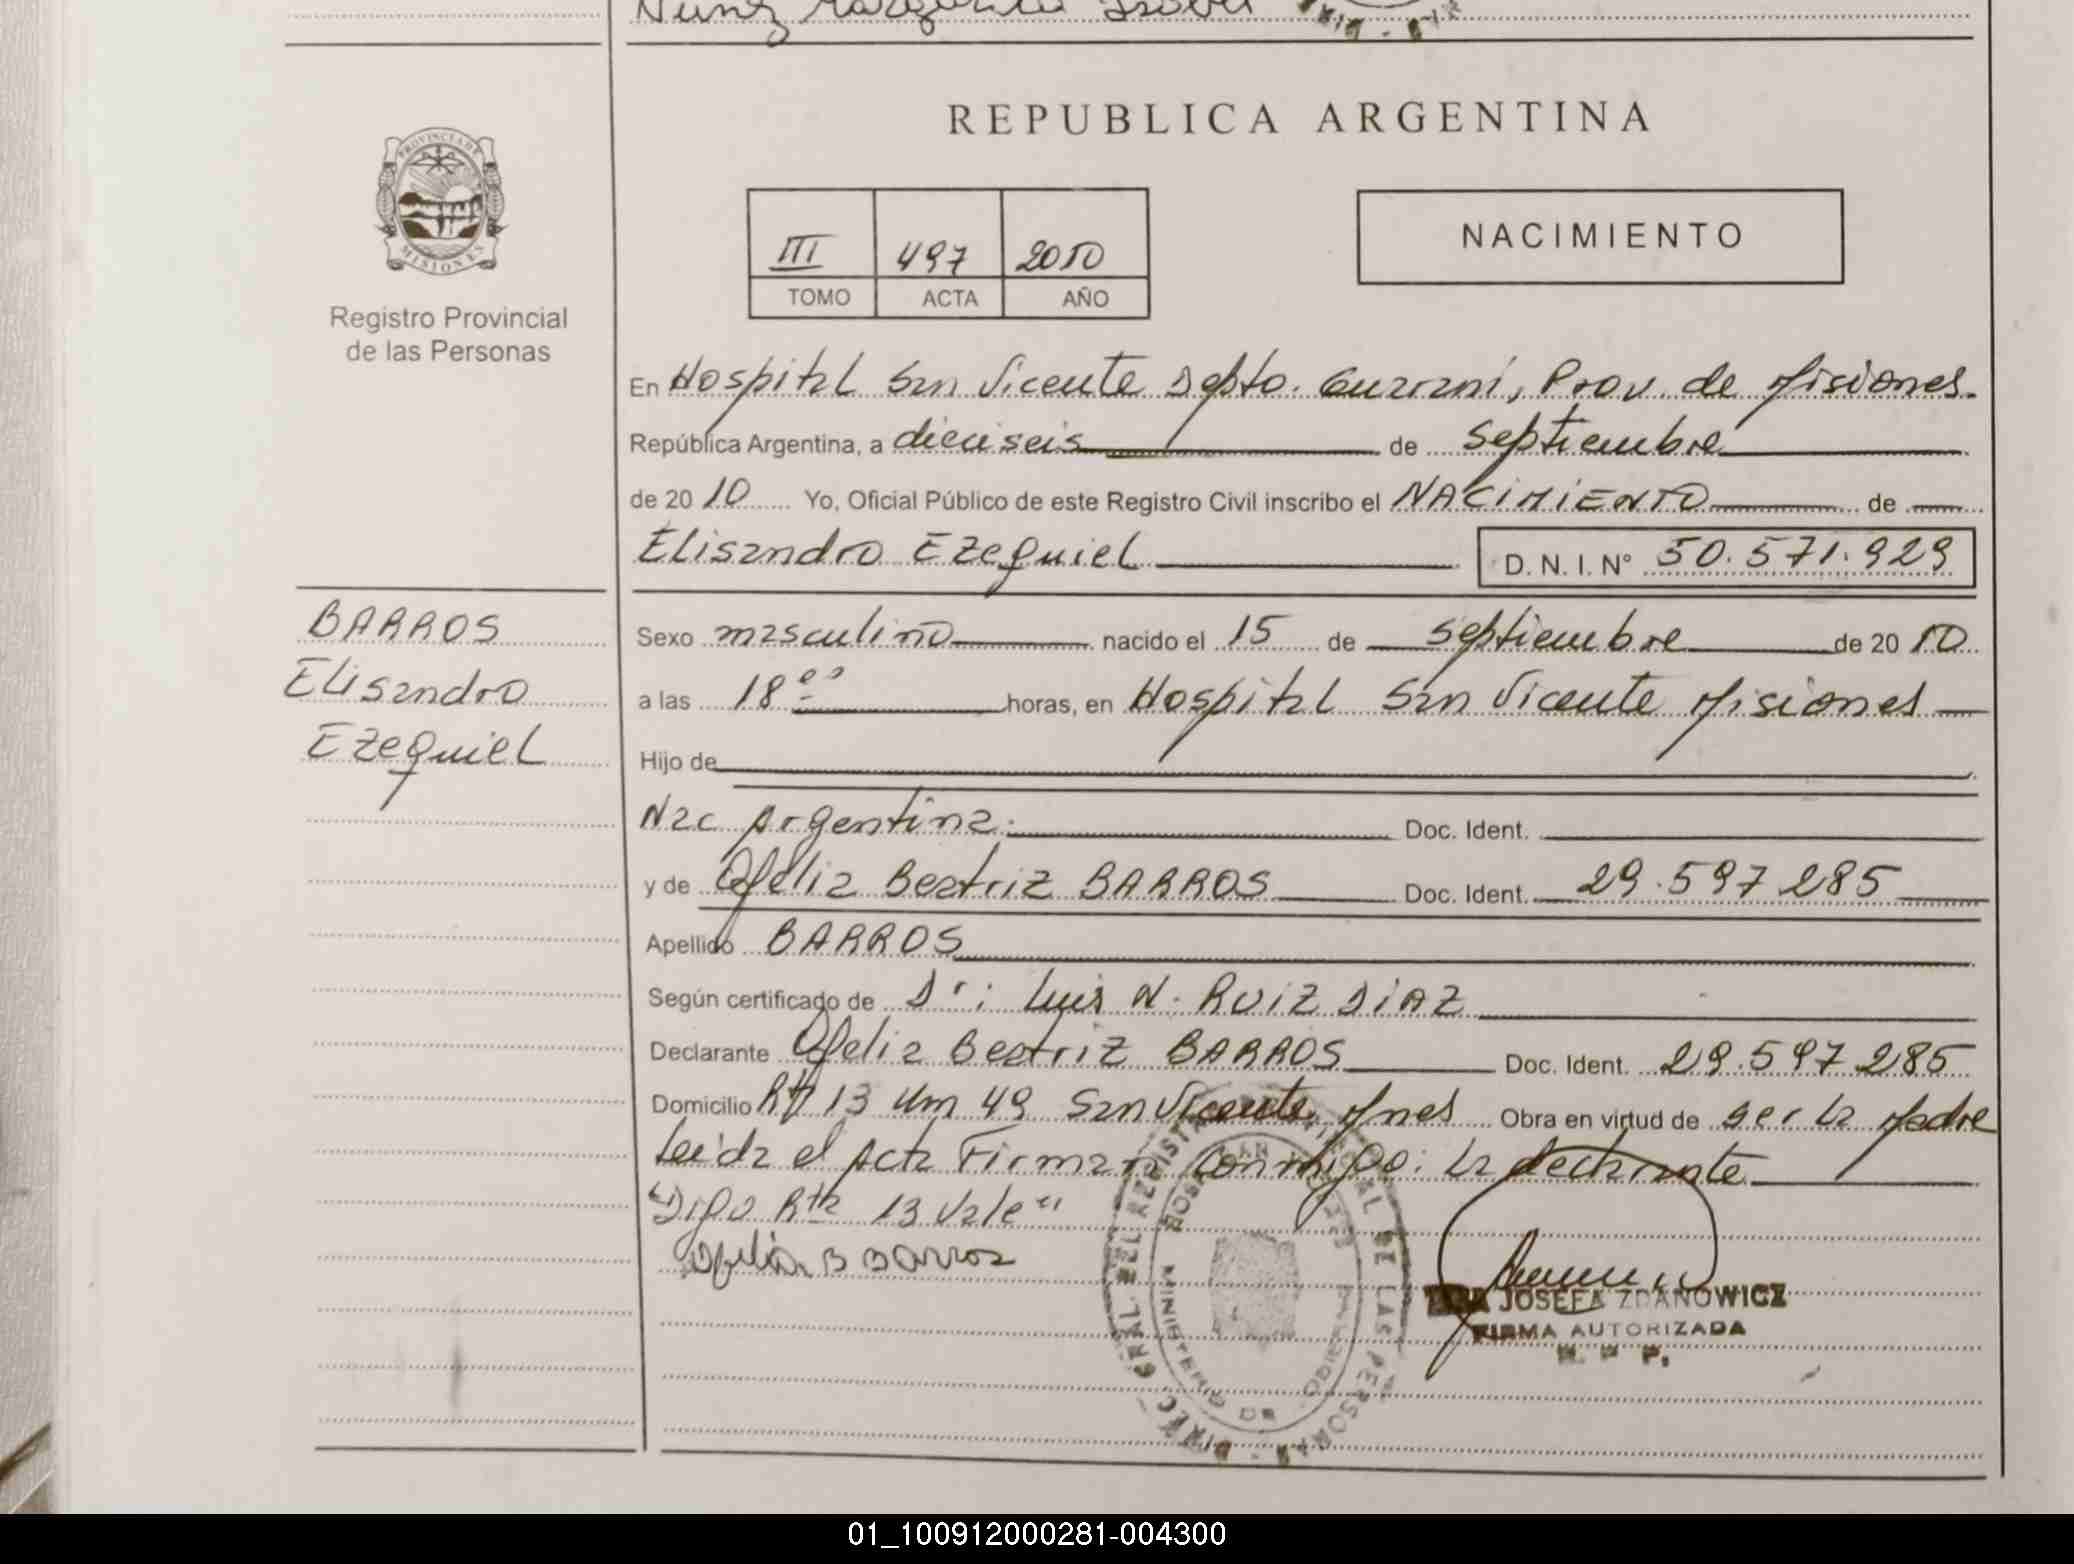 Nuñez Margarita Isabel
REPUBLICA ARGENTINA
PROVINCIA DE
MISIONES
Registro Provincial
de las Personas
III 497 2010
TOMO ACTA AÑO
NACIMIENTO
En Hospital San Vicente Depto. Guaraní, Prov. de Misiones.
República Argentina, a dieciseis de Septiembre
de 20 10 Yo, Oficial Público de este Registro Civil inscribo el NACIMIENTO de
Elisandro Ezequiel D. N. I. Nº 50.571.929
BARROS
Elisandro
Ezequiel
Sexo masculino nacido el 15 de Septiembre de 20 10
a las 18 ºº horas, en Hospital San Vicente Misiones
Hijo de
Nac Argentina. Doc. Ident.
y de Ofelia Beatriz BARROS Doc. Ident. 29.597.285
Apellido BARROS
Según certificado de Dr: Luis N. RUIZ DIAZ
Declarante Ofelia Beatriz BARROS Doc. Ident. 29.597.285
Domicilio Rta 13 Km 49 San Vicente, Mnes Obra en virtud de ser la Madre
Leida el Acta Firman conmigo: La declarante
"Digo Rta 13 Vale"
Ofelia B Barros
DIREC. GRAL. DEL REGISTRO PROVINCIAL DE LAS PERSONAS
MINISTERIO DE GOBIERNO
JOSEFA ZDANOWICZ
FIRMA AUTORIZADA
R. P. P.
01_100912000281-004300